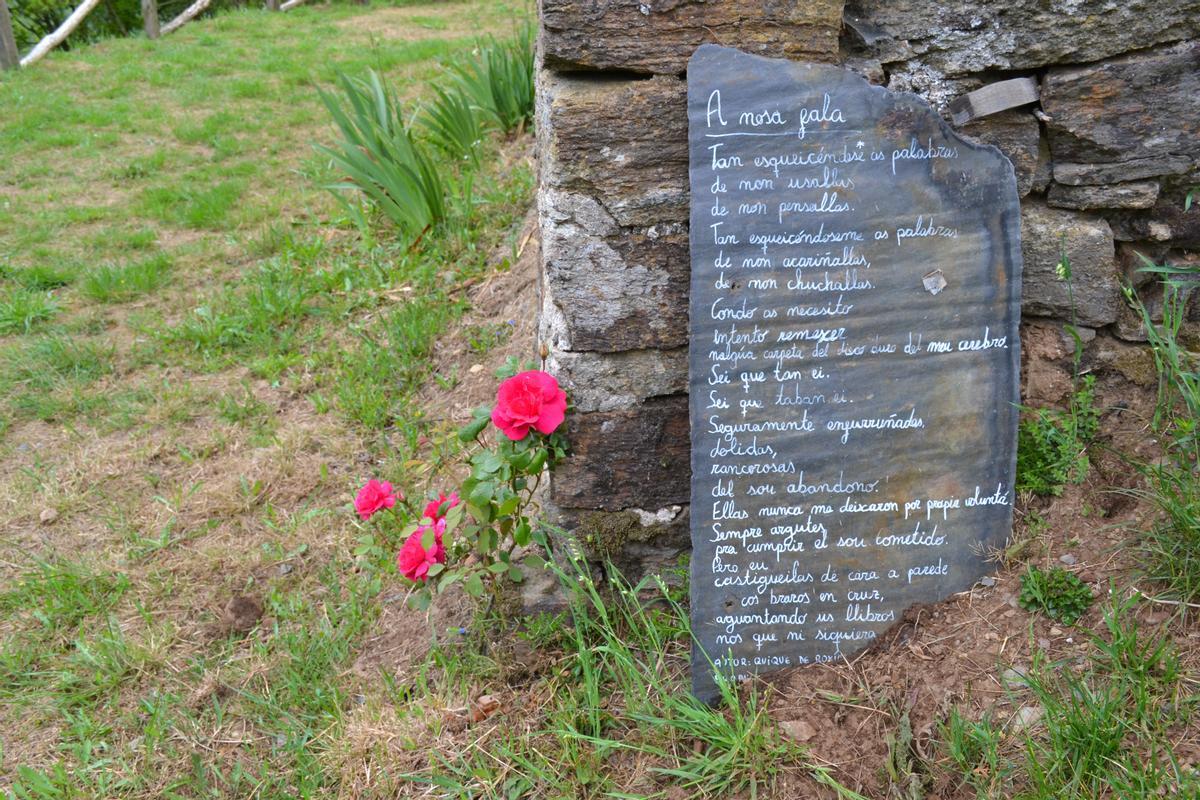 A nosa fala
Tan esqueicéndose* as palabras
de non usallas
de non pensallas.
Tan esqueicéndoseme as palabras
de non acariñallas,
de non chuchallas.
Condo as necesito
Intento remexer
nalgúa carpeta del disco duro del meu cerebro.
Sei que tan ei.
Sei que taban ei.
Seguramente engurruñadas,
dolidas,
rancorosas
del sou abandono.
Ellas nunca me deixaron por propia voluntá.
Sempre argutes
pra cumprir el sou cometido.
Pero eu
castigueilas de cara a parede
cos brazos en cruz,
aguantando us llibros
nos que ni siquiera
QUIQUE DE